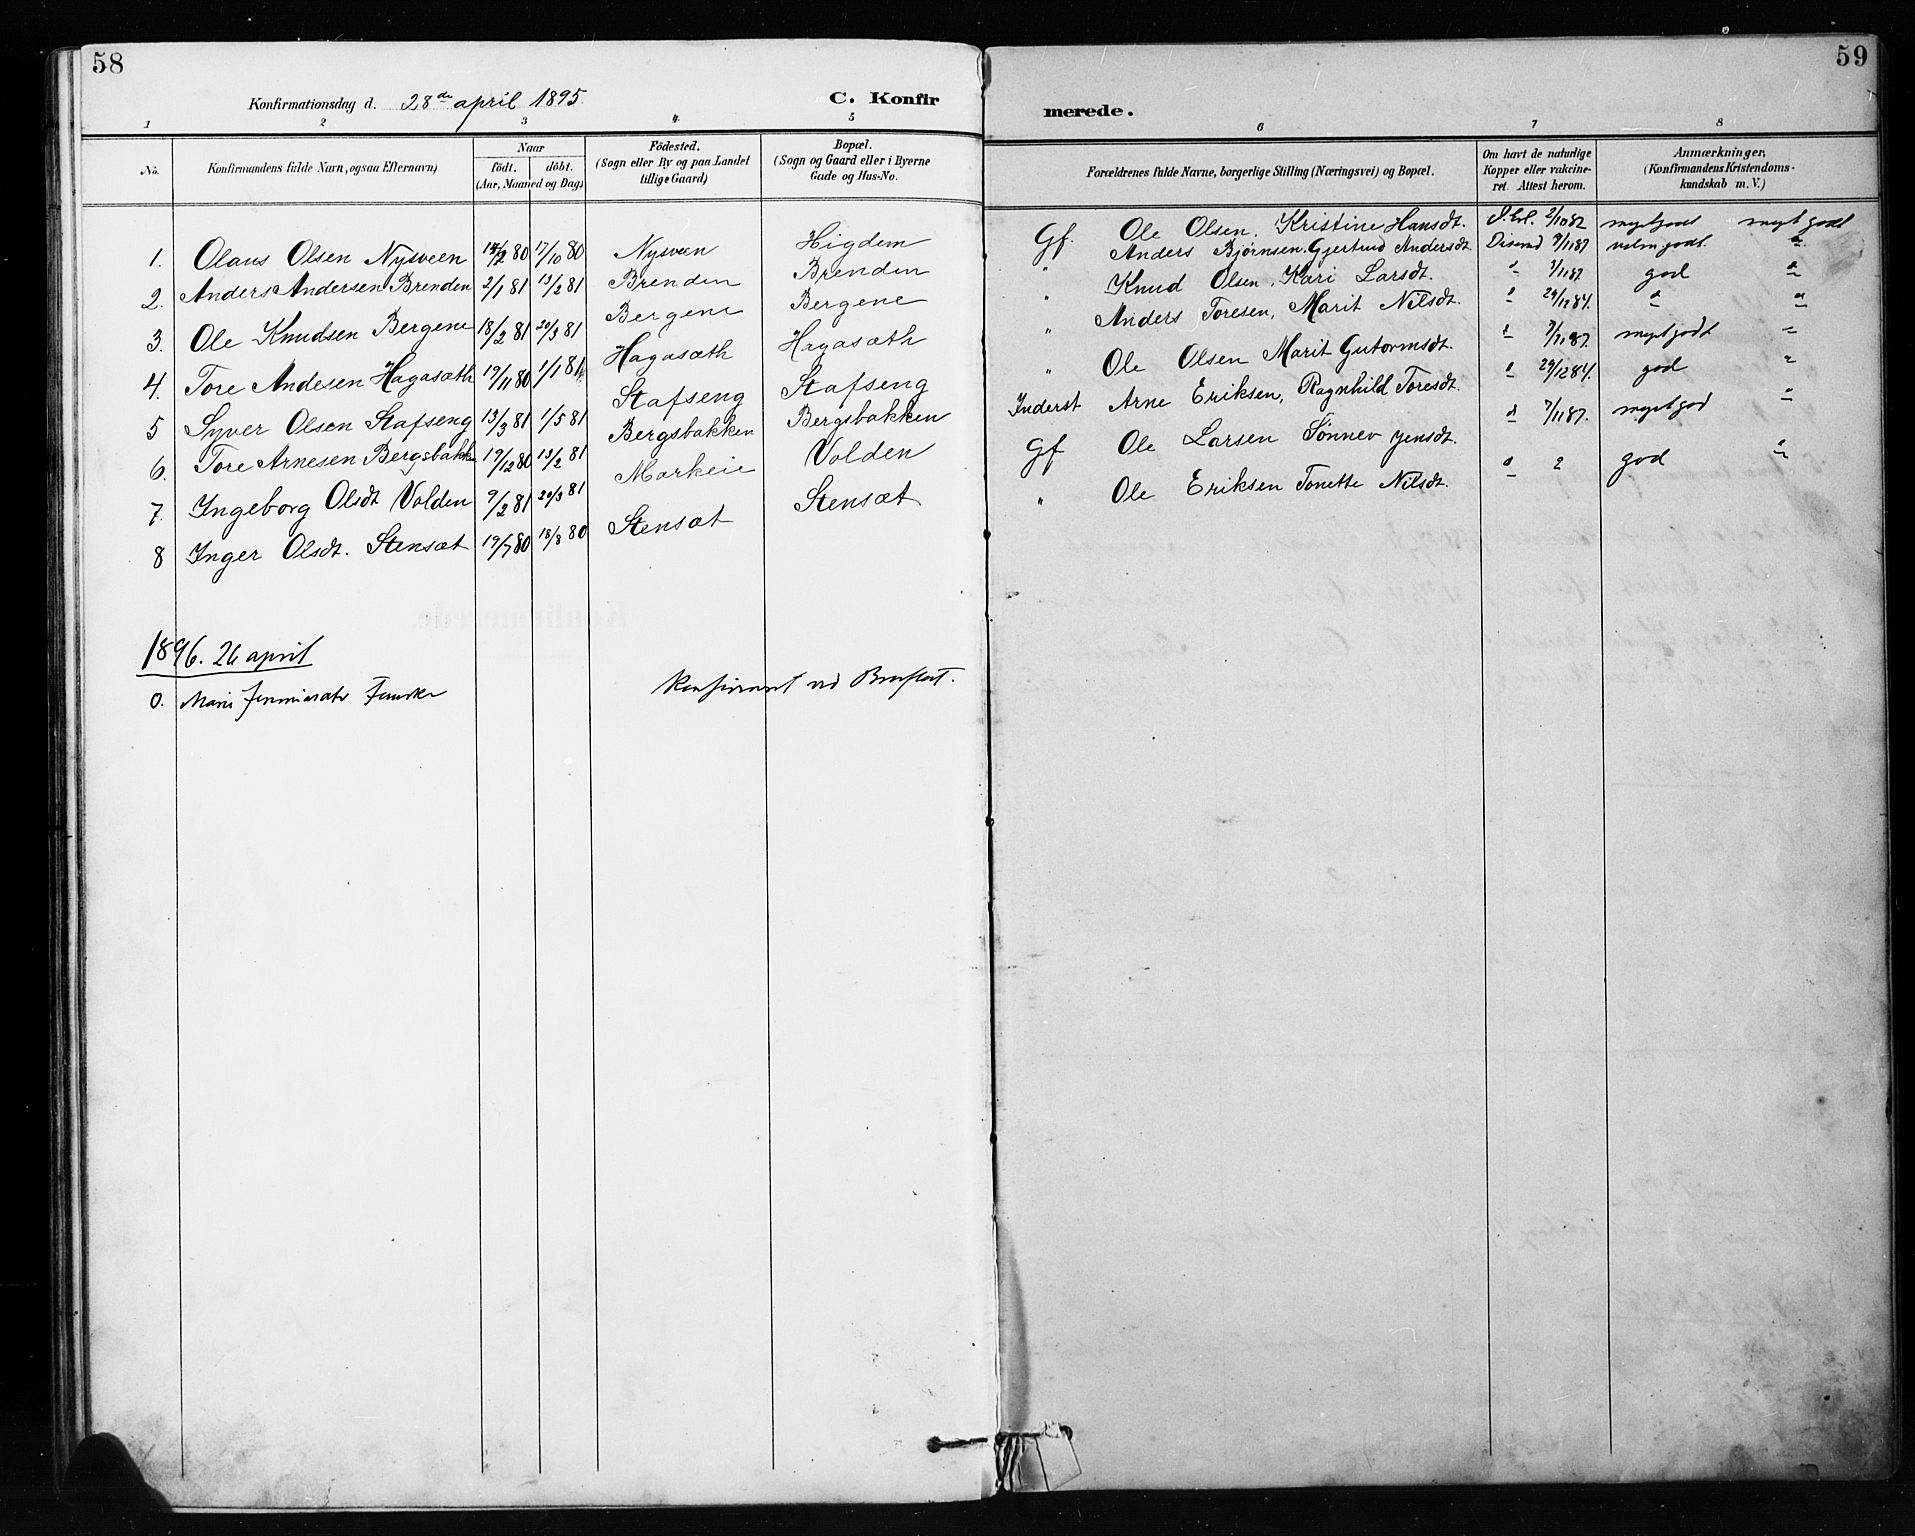 58
Konfirmationsdag d. 28de april 1895.
C. Konfir
1 2 3 4 5
No. Konfirmandens fulde Navn, ogsaa Efternavn) Naar födt. döbt. (Aar, Maaned og Dag) Födested. (Sogn eller By og paa Landet tillige Gaard) Bopæl. (Sogn og Gaard eller i Byerne Gade og Hus-No.
1. Olaus Olsen Nysveen 14/2 80 17/10 80 Nysveen Higdem
2. Anders Andersen Brenden 2/1 81 13/2 81 Brenden Brenden
3. Ole Knudsen Bergene 18/2 81 20/3 81 Bergene Bergene
4. Tore Andesen Hagasæth 19/11 80 1/1 81 Hagasæth Hagasæth
5 Syver Olsen Stafseng 13/3 81 1/5 81 Stafseng Stafseng
6. Tore Arnesen Bergsbakken 19/12 80 13/2 81 Bergsbakken Bergsbakken
7. Ingeborg Olsdt Volden 9/2 81 20/3 81 Markeie Volden
8 Inger Olsdt. Stensæt 19/7 80 18/8 80 Stensæt Stensæt
1896. 26 april
0. Marie
ved
59
merede.
6 7 8
Forældrenes fulde Navne, borgerlige Stilling (Næringsvei) og Bopæl. Om havt de naturlige Kopper eller vakcineret. Attest herom. Anmærkninger, (Konfirmandens Kristendomskundskab m. V.)
Gf. Ole Olsen. Kristine Hansdt. 2/10 82 megetgodt meget godt
" Anders Bjørnsen. Gjertrud Andersdt. 7/11 87
" Knud Olsen, Kari Larsdt. " 7/11 87 god "
" Anders Toresen, Marit Nilsdt. " 29/12 84. " "
" Ole Olsen Marit Gutormsdt. " 7/11 87. megetgodt "
Inderst Arne Eriksen, Ragnhild Toresdt. " 29/12 84. god "
Gf Ole Larsen Sönnev Jensdt. " 7/11 87. megetgod "
" Ole Eriksen Tonette Nilsdt. " ? god "